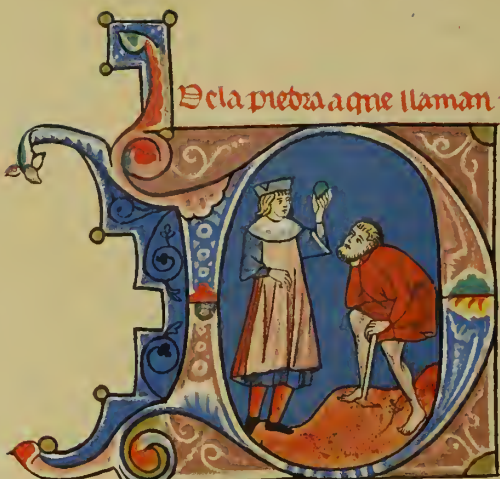 Dela piedra aque llaman